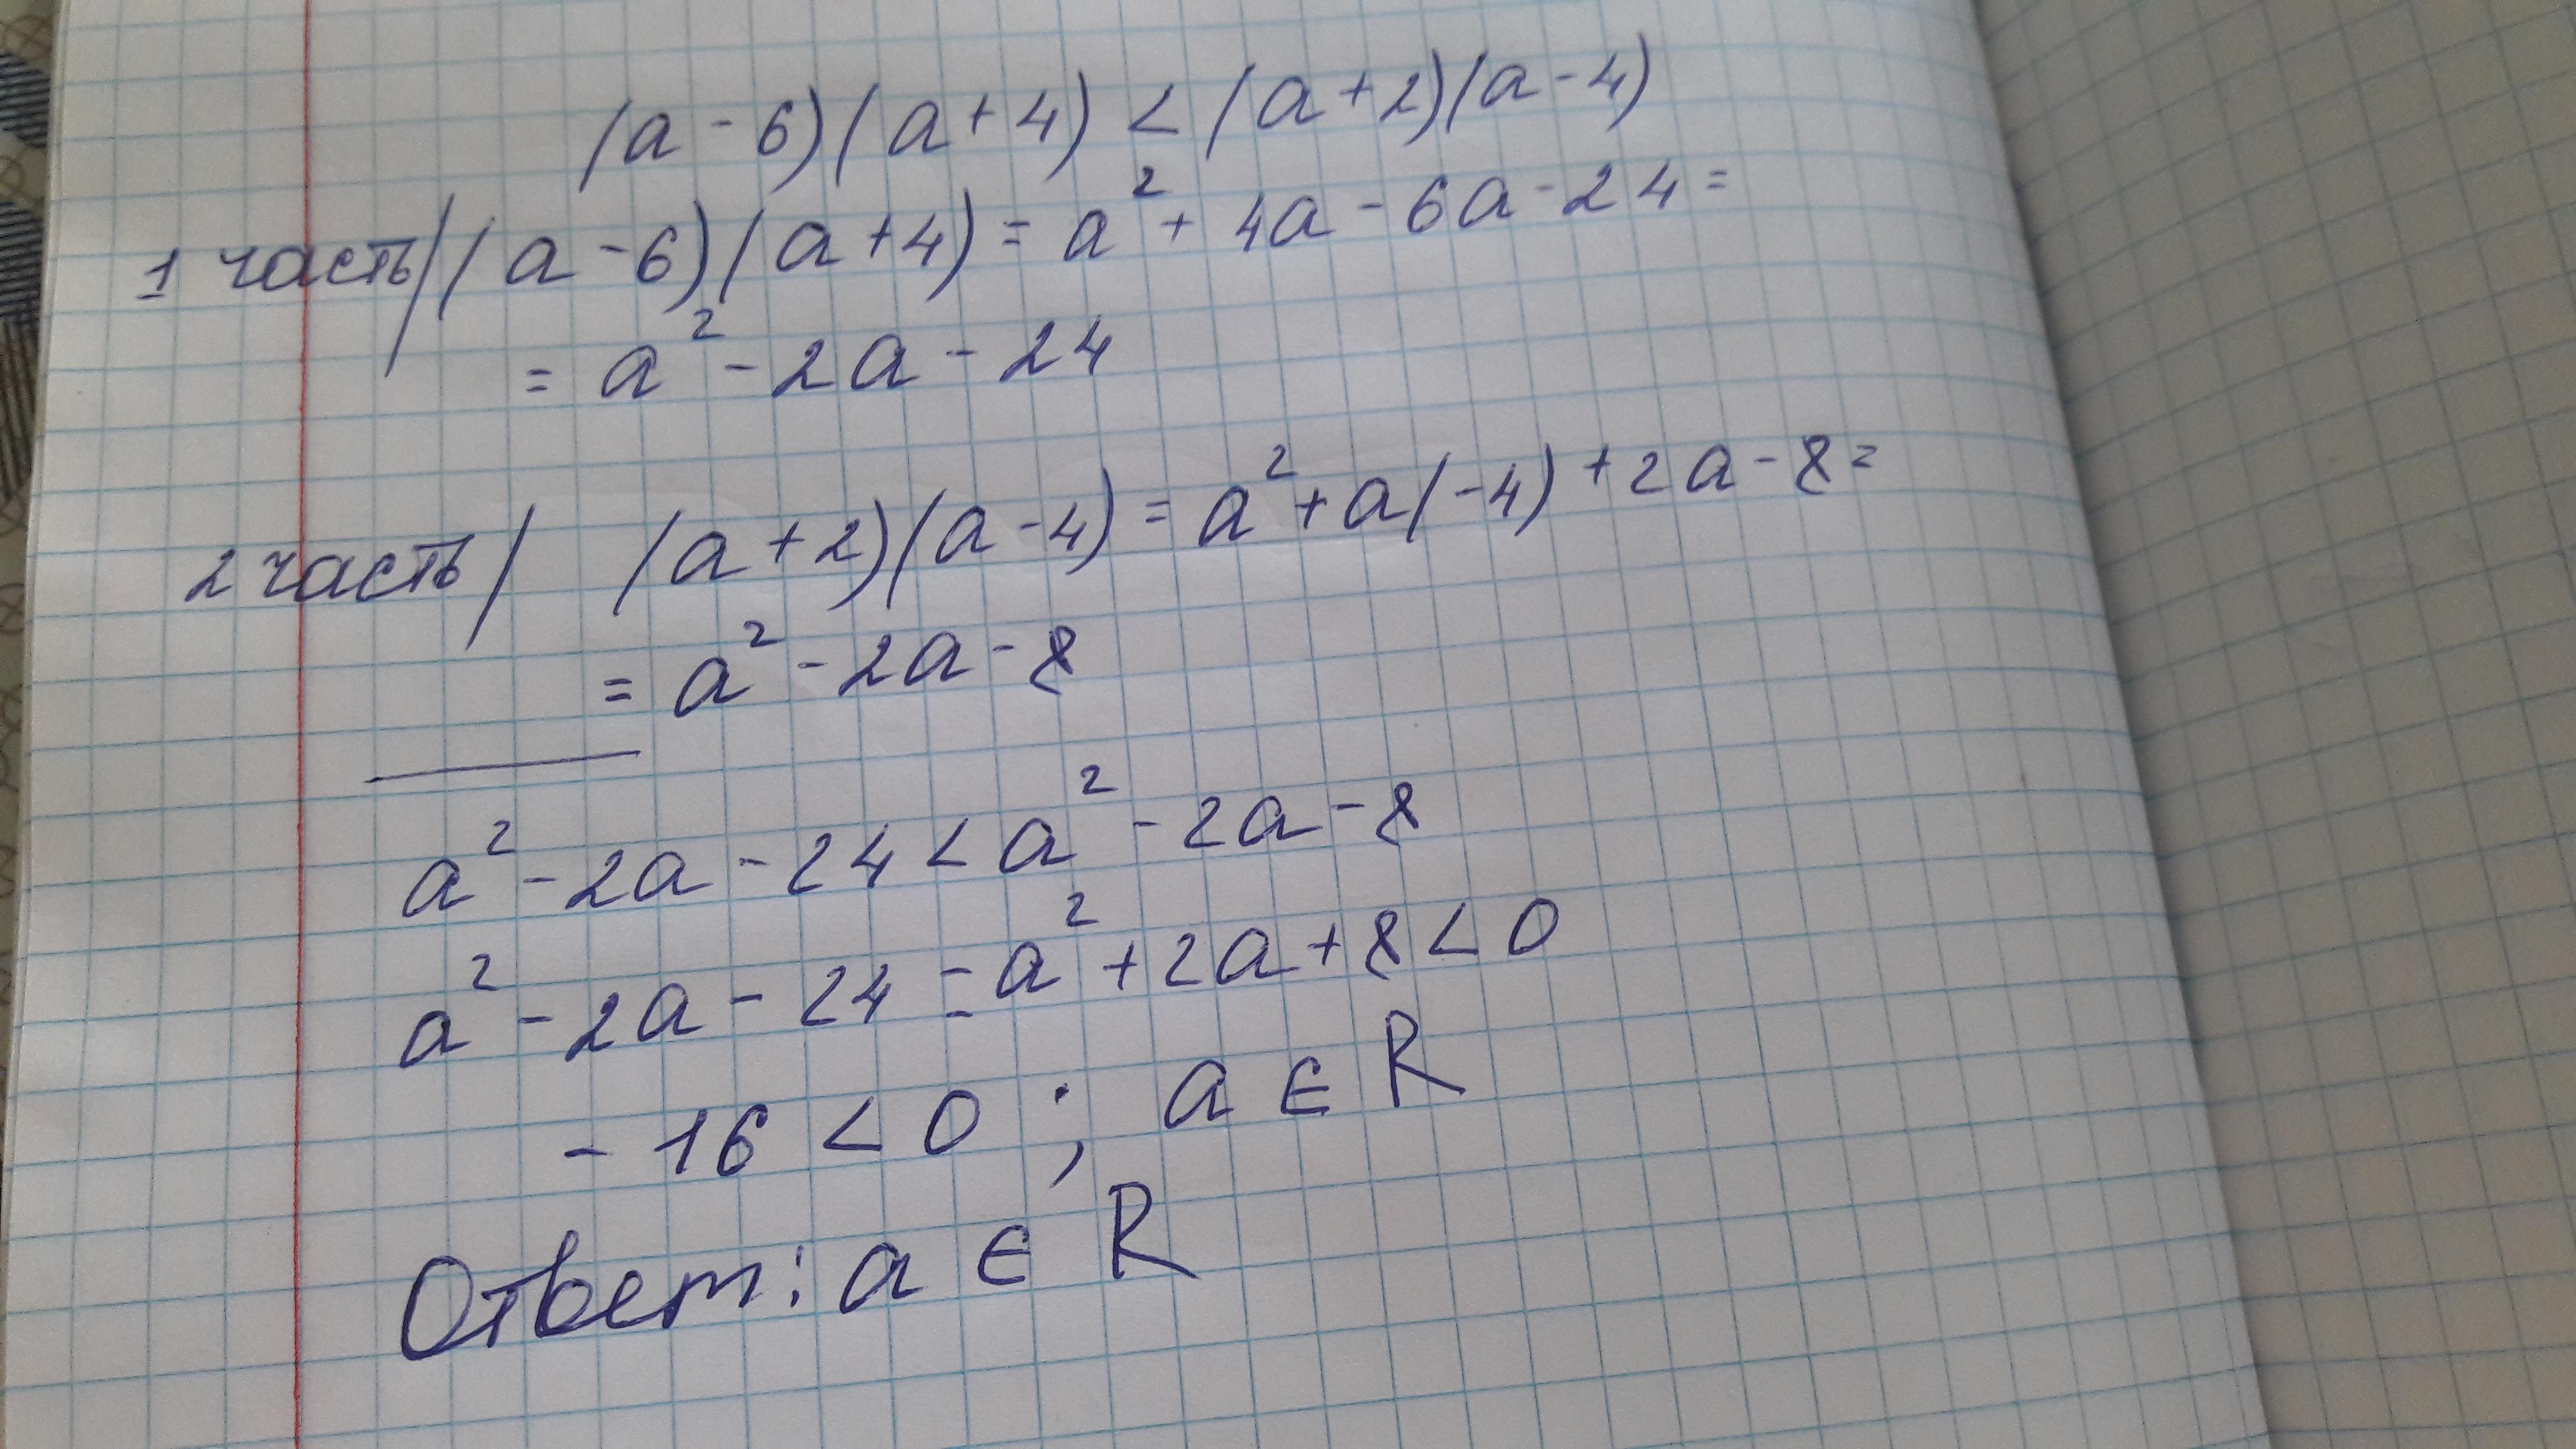 (a - 6)(a + 4) < (a + 2)(a - 4)
1 часть/ (a - 6)(a + 4) = a² + 4a - 6a - 24 =
= a² - 2a - 24
2 часть/ (a + 2)(a - 4) = a² + a(-4) + 2a - 8 =
= a² - 2a - 8
a² - 2a - 24 < a² - 2a - 8
a² - 2a - 24 - a² + 2a + 8 < 0
- 16 < 0 ; a ∈ R
Ответ: a ∈ R